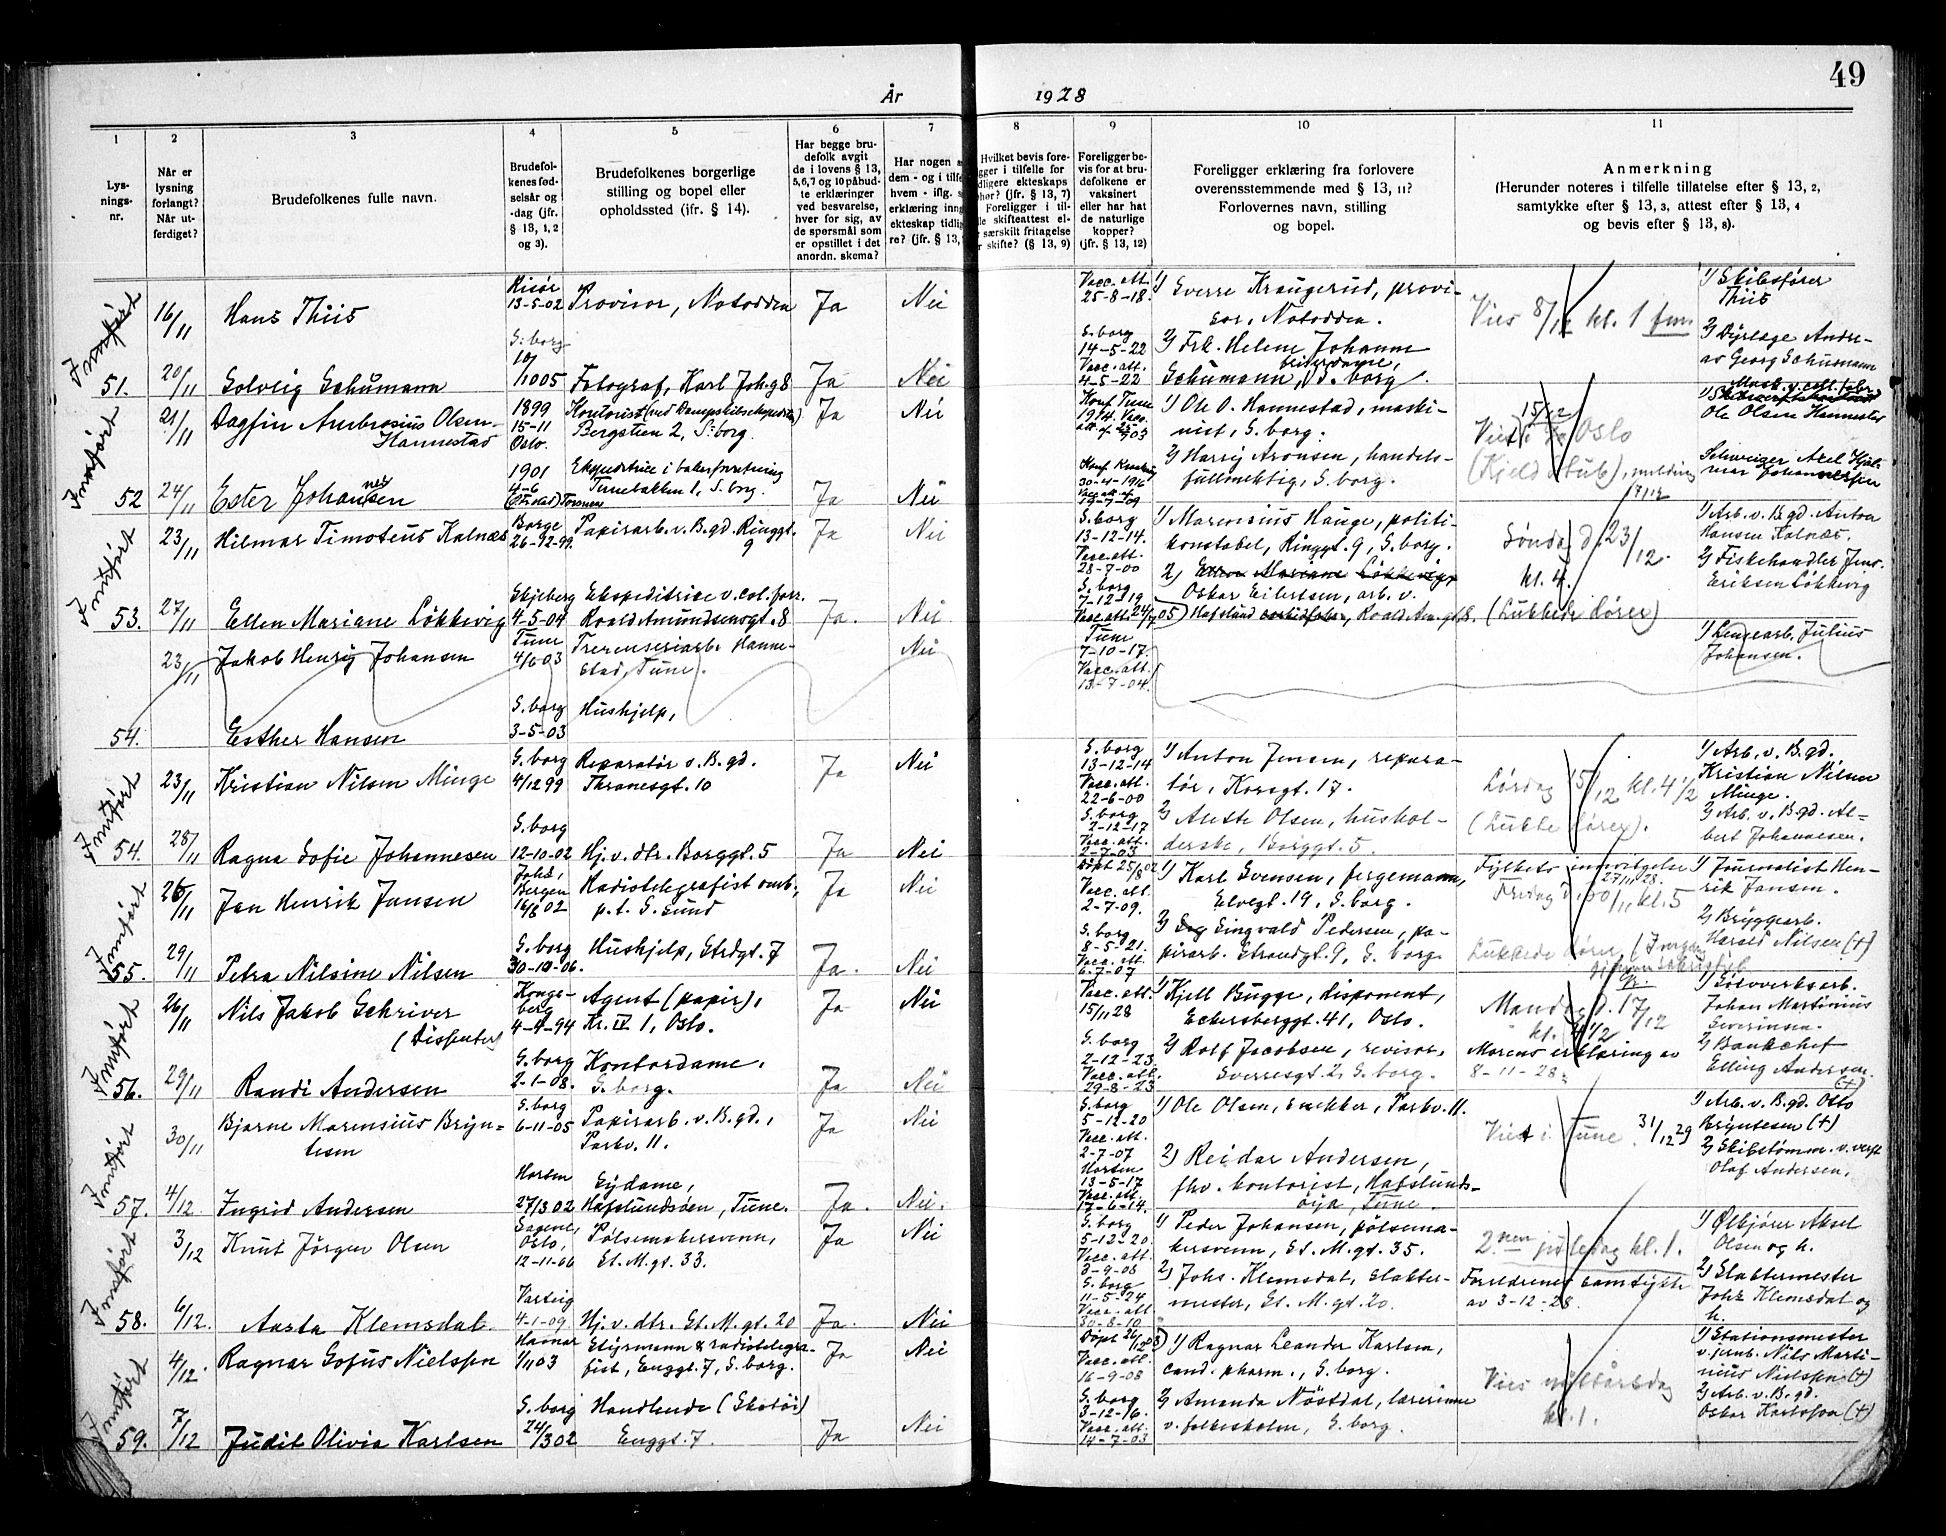 49
År 1928
1 2 3 4 5 6 7 8 9 10 11
Lys-
nings-
nr.
Når er
lysning
forlangt?
Når ut-
ferdiget?
Brudefolkenes fulle navn.
Brudefol-
kenes fød-
selsår og
-dag (jfr.
§ 13, 1, 2
og 3).
Brudefolkenes borgerlige
stilling og bopel eller
opholdssted (jfr. § 14).
Har begge bru-
defolk avgit
de i lovens § 13,
5,6,7 og 10 påbud-
te erklæringer
ved besvarelse,
hver for sig, av
de spørsmål som
er opstillet i det
anordn. skema?
Har nogen a
dem - og i tilfe
hvem - iflg. s
erklæring inng
ekteskap tidlig
re? (jfr. § 13,
Hvilket bevis fore-
gger i tilfelle for
dligere ekteskaps
phør? (jfr. § 13, 7)
Foreligger i til-
lle skifteattest el-
særskilt fritagelse
r skifte? (§ 13, 9)
Foreligger be-
vis for at bru-
defolkene er
vaksinert
eller har hat
de naturlige
kopper?
(jfr. § 13, 12)
Foreligger erklæring fra forlovere
overensstemmende med § 13, 11?
Forlovernes navn, stilling
og bopel.
Anmerkning
(Herunder noteres i tilfelle tillatelse efter § 13, 2,
samtykke efter § 13, 3, attest efter § 13, 4
og bevis efter § 13, 8).
Innført
16/11 Hans Thiis
Risør
13-5-02 Provisor, Notodden Ja Nei
Vacc. att.
25-8-18.
1) Sverre Kraugerud, provi-
sor, Notodden.
Vies 8/12 kl. 1 fm.
1) Skibsfører
Thiis
51. 20/11 Solveig Schumann
S. borg
10/10 05 Fotograf, Karl Joh.g 8 Ja Nei
S. borg
14-5-22
Vacc. att.
4-5-22
2) Frk. Helene Johanne
Schumann, S. borg.
2) Dyrlæge Andre-
as Georg Schumann
Innført
21/11 Dagfin Ambrosius Olsen-
Hannestad
1899
15-11
Oslo.
Kontorist (ved Dampskibsekspedit.)
Bergstien 2, S. borg. Ja Nei
Konf. Tune
1914. Vacc.
1) Ole O. Hannestad, maski-
nist, S. borg.
Viet i Oslo
(Kjeld Stub), melding
17/12
Ole Olsen Hannestad
52 24/11 Ester Johannesen
1901
4-6
Ekspeditrice i bakerforretning
Tunebakken 1, S. borg. Ja Nei
30-4-1916
19-7-09
2) Harry Aronsen, handels-
fullmektig, S. borg.
Schweiger Axel Hjal-
mar Johannessen
Innført
23/11 Hilmar Timoteus Kalnæs
Borge
26-12-99. Papirarb. v. B. gd. Ringgt.
9 Ja Nei
S. borg
13-12-14.
Vacc. att.
28-7-00
1) Marensius Hauge, politi-
konstabel, Ringgt. 9, S. borg.
Søndag d. 23/12.
kl. 4.
1) Arb. v. B. gd. Anton
Hansen Kalnæs.
53. 27/11 Ellen Mariane Løkkevig
Skjeberg
4-5-04
Ekspeditrice v. col. forr.
Roald Amundsensgt. 8 Ja. Nei
S. borg
7-12-19
Vacc. att. 24/7 05
2) Ellen Mariane Løkkevig
Oskar Eilertsen, arb. v.
Hafslund, Roald Am. gt. 8.
(Lukkede dører)
2) Fiskehandler Jens
Eriksen Løkkevig
23/11 Jakob Henry Johansen
Tune
4/6 03 Hanne-
stad, Tune. Nei
Tune
7-10-17.
Vacc. att.
13-7-04.
1) Linjearb. Julius
Johansen.
54. Esther Hansen
S. borg
3-5-03 Hushjelp,
Innført
23/11 Kristian Nilsen Minge
S. borg
4/12 99 Reparatør v. B. gd.
Thranesgt. 10 Ja Nei
S. borg
13-12-14
Vacc. att.
22-6-00
1) Anton Jensen, repara-
tør, Korsgt. 17.
Lørdag 15/12 kl. 4 1/2
(Lukte dører).
1) Arb. v. B. gd.
Kristian Nilsen
Minge.
54. 28/11 Ragna Sofie Johannesen
S. borg
12-10-02 Hj. v. dtr. Borggt. 5 Ja Nei
S. borg
2-12-17
Vacc. att.
2-7-03
2) Anette Olsen, hushol-
derske, Borggt. 5.
2) Arb. v. B. gd. Al-
bert Johannesen.
Innført
26/11 Jan Henrik Jansen
Johs,
Bergen
16/8 02 Radiotelegrafist omb.,
p. t. S. sund Ja Nei
Døpt 25/8 02
Vacc. att.
2-7-09.
1) Karl Svensen, fergemann,
Elvegt. 19, S. borg.
Fylkets innvilgelse
27/11 28.
Fredag d. 30/11 kl. 5
1) Journalist Hen-
rik Jansen.
55. 29/11 Petra Nilsine Nilsen
S. borg
30-10-06. Hushjelp, Strdgt. 7 Ja. Nei
S. borg
8-5-21.
Vacc. att.
6-7-07
2) Singvald Pedersen, pa-
pirarb. Strandgt. 9, S. borg.
Lukkede dører
2) Bryggearb.
Harald Nilsen (+)
Innført
26/11 Nils Jakob Schriver
(Dissenter)
Kongs-
berg
4-4-94 Agent (papir),
Kr. IV 1, Oslo. Ja Nei
Vacc. att.
15/11 28
1) Kjell Bugge, disponent,
Eckersberggt. 41, Oslo.
Mandag d. 17/12
kl. 4 1/2
1) Sølvverksarb.
Johan Martinius
Severinsen.
56. 29/11 Randi Andersen
S. borg
2-1-08. Kontordame,
S. borg. Ja Nei
S. borg
2-12-23.
Vacc. att.
29-8-23
2) Rolf Jacobsen, revisor,
Sverresgt. 2, S. borg.
Morens erklæring av
8-11-28.
2) Bankchef
Elling Andersen.
(+)
Innført
30/11 Bjarne Marensius Bryn-
tesen
S. borg
6-11-05 Papirarb. v. B. gd.,
Parkv. 11. Ja Nei
S. borg
5-12-20
Vacc. att.
2-7-07
1) Ole Olsen, snekker, Parkv. 11.
Viet i Tune 31/12 29
1) Arb. v. B. gd. Oslo
Bryntesen (+)
57. 4/12 Ingrid Andersen
Horten
27/3 02 Sydame,
Hafslundsøen, Tune. Ja. Nei.
Horten
13-5-17
Vacc. att.
17-6-14.
2) Reidar Andersen,
fhv. kontorist, Hafslunds-
øya, Tune.
2) Skibstømm. v. verft
Olaf Andersen,
Innført
3/12 Knut Jørgen Olsen
Sagene,
Oslo,
12-11-06 Pølsemakersvenn,
St. M. gt. 33. Ja Nei
S. borg
5-12-20.
Vacc. att.
3-9-08
1) Peder Johansen, pølsema-
kersvenn, St. M. gt. 35.
2nen juledag kl. 1.
1) Ølkjører Aksel
Olsen og h.
58. 6/12. Aasta Klemsdal.
Varteig
4-1-09 Hj. v. dtr. St. M. gt. 20 Ja. Nei
S. borg
11-5-24
Vacc. att.
30-8-10
2) Johs. Klemsdal, slakter-
mester, St. M. gt. 20.
Foreldrenes samtykke
av 3-12-28.
2) Slaktermester
Johs. Klemsdal og
h.
Innført
4/12. Ragnar Sofus Nielssen
Hamar
1/11 03 Styrmann & radiotelegra-
fist, Enggt. 7, S. borg. Ja Nei
Døpt 26/12 03)
Vacc. att.
16-9-08
1) Ragnar Leander Karlsen,
cand. pharm., S. borg.
Vies nyttårsdag
kl. 1.
1) Stationsmester
v. jernb. Nils Marti-
nius Nielssen (+)
59. 7/12 Judit Olivia Karlsen
S. borg
24/3 02 Handlende (Skotøi)
Enggt. 7. Ja Nei
S. borg
3-12-16.
Vacc. att.
14-7-03
2) Amanda Nøstdal, lærerinne
v. folkeskolen, S. borg.
2) Arb. v. B. gd.
Oskar Karlsson (+)